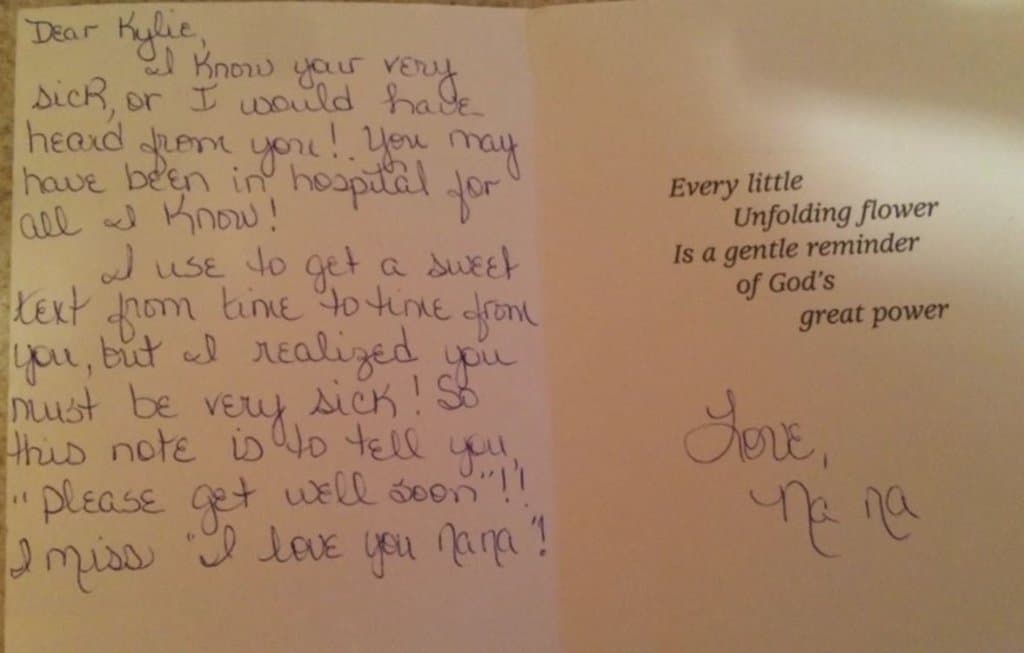 Dear Kylie,
I know your very
sick, or I would have
heard from you! You may
have been in hospital for
all I know!
I use to get a sweet
text from time to time from
you, but I realized you
must be very sick! So
this note is to tell you,
"please get well soon"!!
I miss "I love you Nana"!
Every little
Unfolding flower
Is a gentle reminder
of God's
great power
Love,
Na na